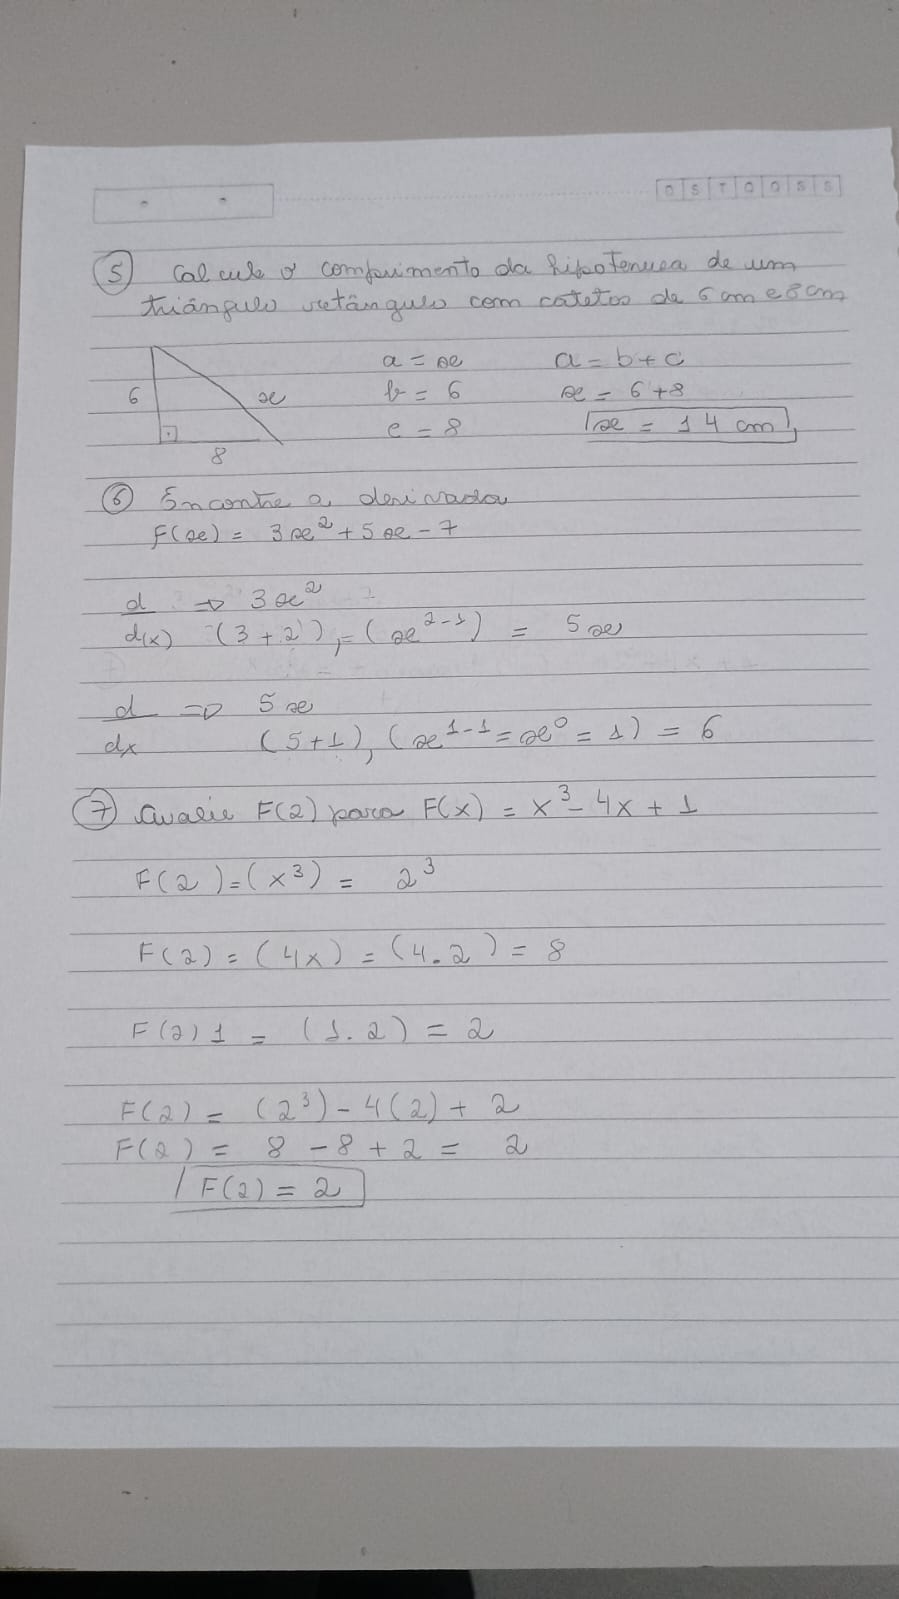 D S T Q Q S S
5 Calcule o comprimento da hipotenusa de um
triângulo retângulo com catetos de 6 cm e 8 cm
6 x 8
a = x a = b + c
b = 6 x = 6 + 8
c = 8 x = 14 cm
6 Encontre a derivada
F(x) = 3x² + 5x - 7
d ⇒ 3x²
d(x) (3 + 2), = (x²⁻¹) = 5x
d ⇒ 5x
dx (5+1), (x¹⁻¹ = x⁰ = 1) = 6
7 Avalie F(2) para F(x) = x³ - 4x + 1
F(2) = (x³) = 2³
F(2) = (4x) = (4.2) = 8
F(2) 1 = (1.2) = 2
F(2) = (2³) - 4(2) + 2
F(2) = 8 - 8 + 2 = 2
F(2) = 2